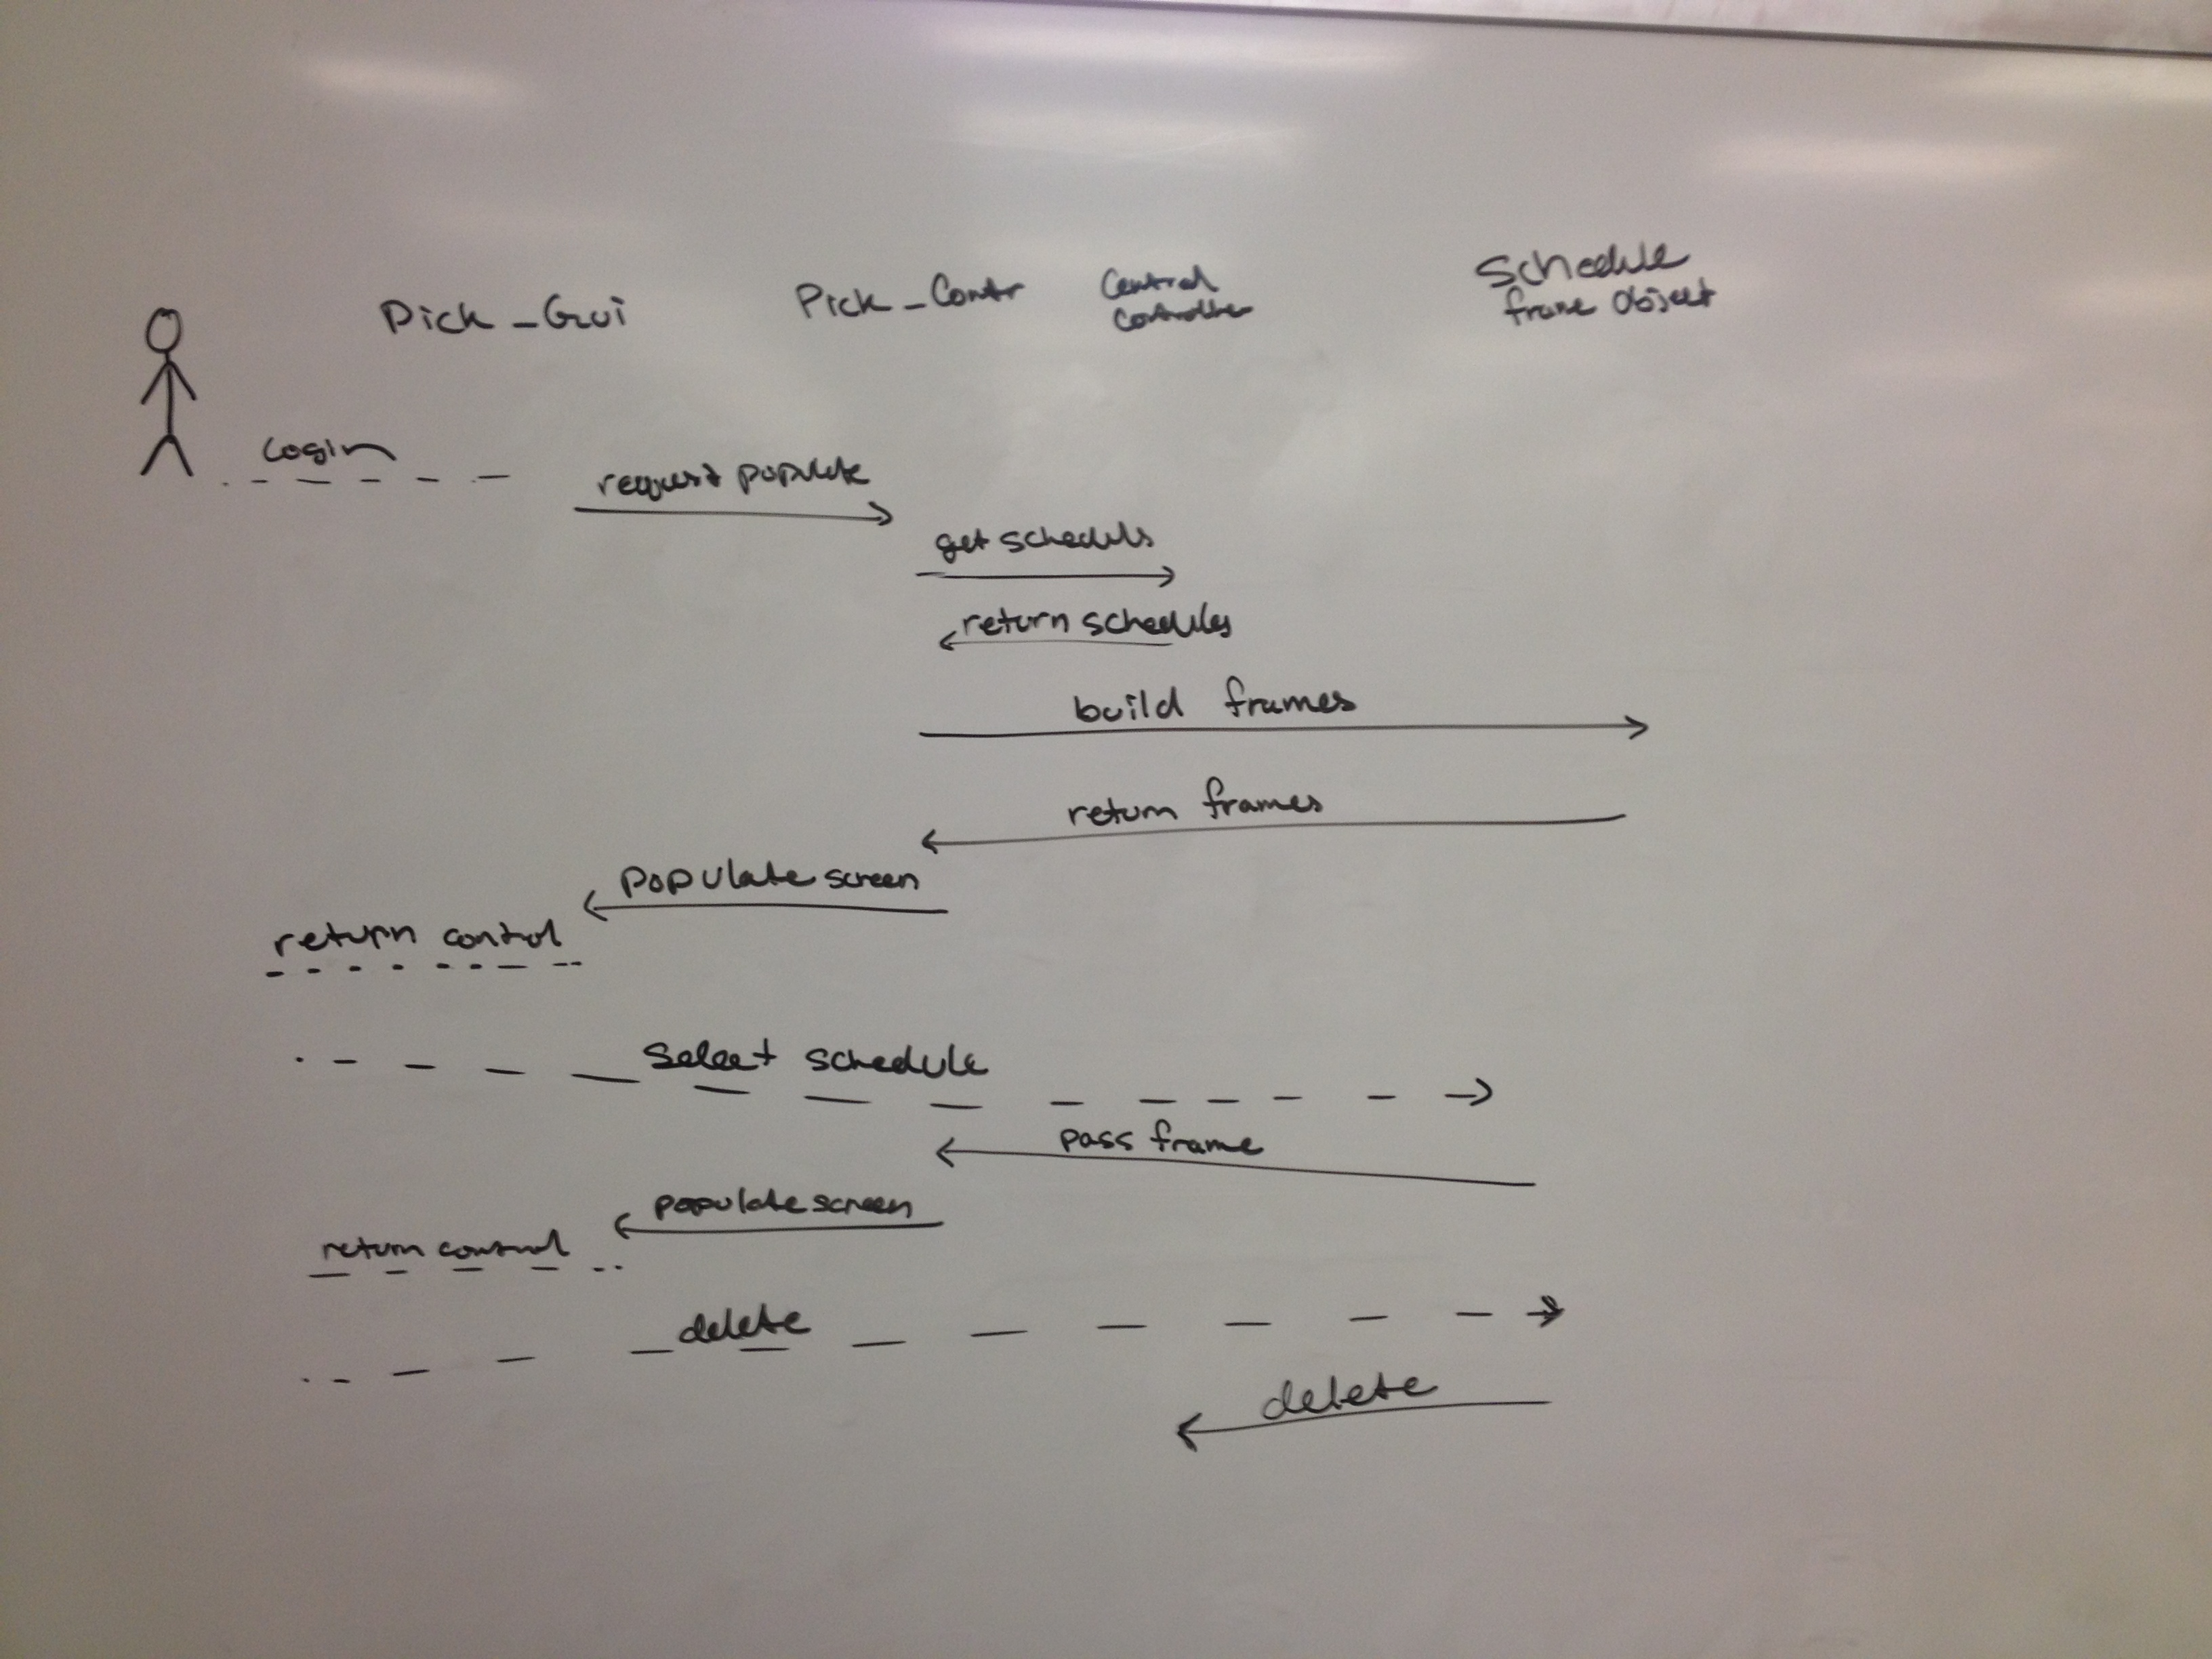 Pick_Gui
Pick_Contr
Central
Controller
Schedule
frame Object
Login
request populate
get schedules
return schedules
build frames
return frames
populate screen
return control
Select schedule
pass frame
populate screen
return control
delete
delete